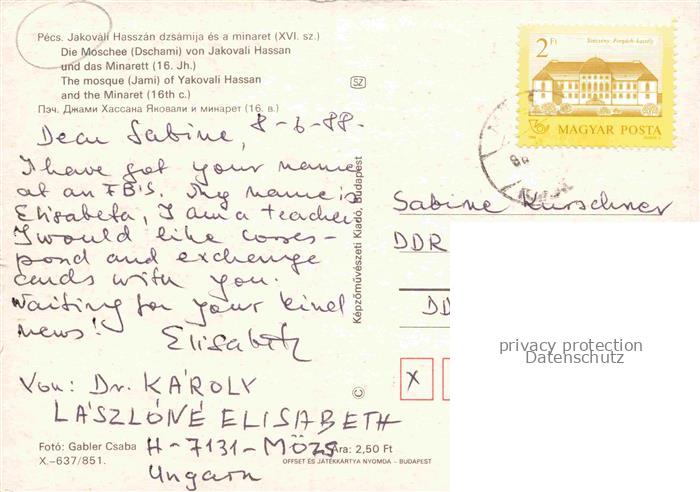 Pécs. Jakováli Hasszán dzsámija és a minaret (XVI. sz.)
Die Moschee (Dschami) von Jakovali Hassan
und das Minarett (16. Jh.)
The mosque (Jami) of Yakovali Hassan
and the Minaret (16th c.)
Пэч. Джами Хассана Яковали и минарет (16. в.)
SZ
2 Ft
Szécsény, Forgách-kastély
MAGYAR POSTA
Dear Sabine, 8-6-88.
I have got your name
at an FBS. My name is
Elisabeta, I am a teacher
I would like corres-
pond and exchange
cards with you.
Waiting for your kind
news!
Elisabeth
Von: Dr. KÁROLY
LÁSZLÓNÉ ELISABETH
H-7131-MÖZS
Ungarn
Képzőművészeti Kiadó, Budapest
Sabine Kürschner
DDR
DD
privacy protection
Datenschutz
X
©
Fotó: Gabler Csaba
X.-637/851.
Ára: 2,50 Ft
OFFSET ÉS JÁTÉKKÁRTYA NYOMDA – BUDAPEST